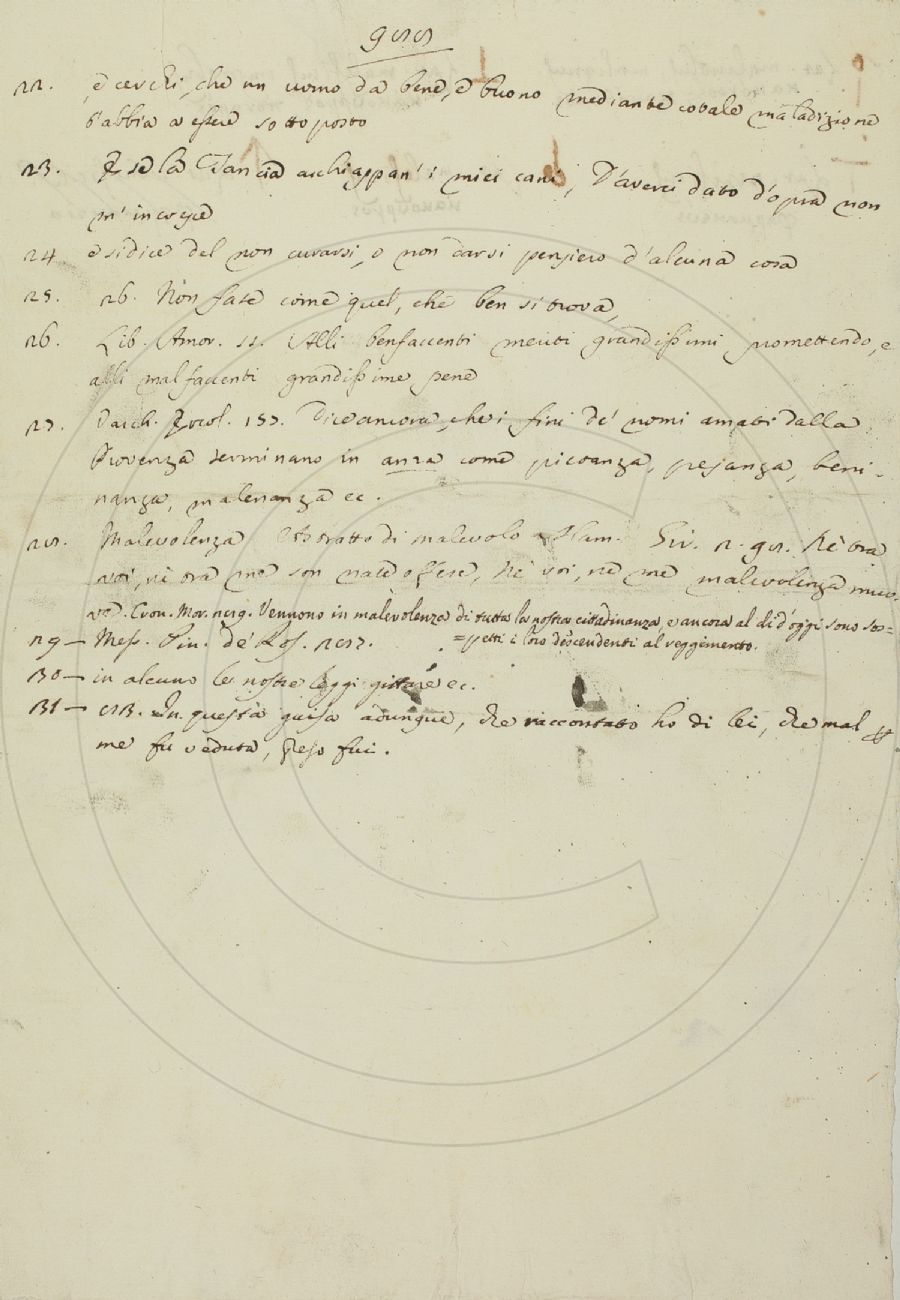 22. e cerchi, che un uomo da bene, e buono mediante cotale maladizione
s'abbia a essere sottoposto
23. E se la Tancia acchiappan' i miei cani, D'averci dato d'opra non
m' incresce
24 e si dice del non curarsi, o non darsi pensiero d'alcuna cosa
25. 26. Non fate come quel, che ben si trova,
26. Lib. Amor. 55. Alli benfaccenti meriti grandissimi promettendo, e
alli malfaccenti grandissime pene
27. Varch. Ercol. 157. Dice ancora, che i fini de' nomi amati dalla
Provenza terminano in anza come pietanza, pesanza, beni-
nanza, malenanza ec.
28. Malevolenza Astratto di malevolo Nè ora
voi, nè ora me son nate offese, Nè voi, nè me malevolenza
Cron. Mor. Vennono in malevolenza di tutta la nostra cittadinanza, e ancora al dì d'oggi sono sos=
=petti i loro descendenti al reggimento.
29 — Mess. Cin.
30 — in alcuno le nostre leggi gittare ec.
31 — In questa guisa adunque, che raccontato ho di lei, che mal
me fu veduta, preso fui.